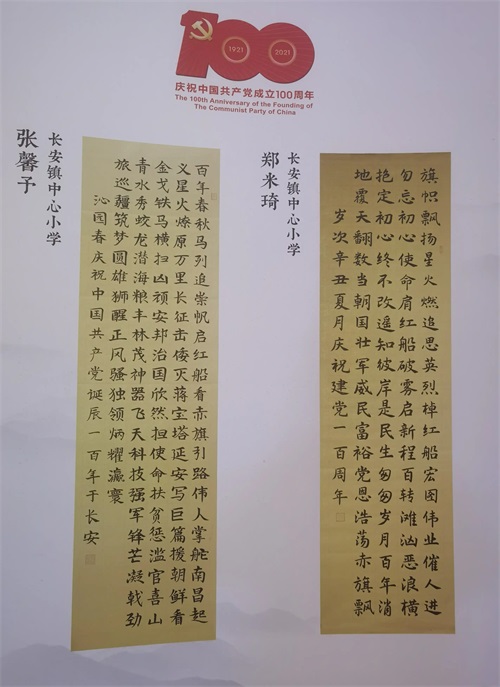 100
1921 2021
庆祝中国共产党成立100周年
The 100th Anniversary of the Founding of
The Communist Party of China
长安镇中心小学
郑米琦
旗帜飘扬星火燃追思英烈棹红船宏图伟业催人进
勿忘初心使命肩红船破雾启新程百转滩汹恶浪横
抱定初心终不改遥知彼岸是民生匆匆岁月百年消
地覆天翻数当朝国壮军威民富裕党恩浩荡赤旗飘
岁次辛丑夏月庆祝建党一百周年
长安镇中心小学
张馨予
百年春秋马列追崇帆启红船看赤旗引路伟人掌舵南昌起
义星火燎原万里长征击倭灭蒋宝塔延安写巨篇援朝鲜看
金戈铁马横扫凶顽安邦治国欣然担使命扶贫惩滥官喜山
青水秀蛟龙潜海粮丰林茂神器飞天科技强军锋芒凝戟劲
旅巡疆筑梦圆雄狮醒正风骚独领炳耀瀛寰
沁园春庆祝中国共产党诞辰一百年于长安